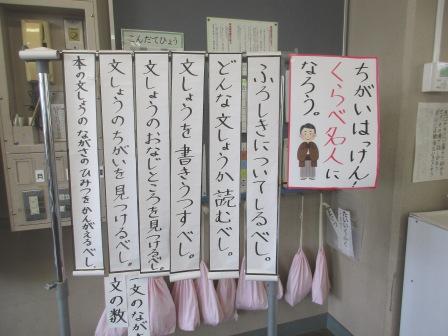 こんだてひょう
ちがいはっけん!
くらべ名人に
なろう。
ふろしきについてしるべし。
どんな文しょうか読むべし。
文しょうを書きうつすべし。
文しょうのおなじところを見つけるべし。
文しょうのちがいを見つけるべし。
本の文しょうのながさのひみつをかんがえるべし。
文のなが
文の数